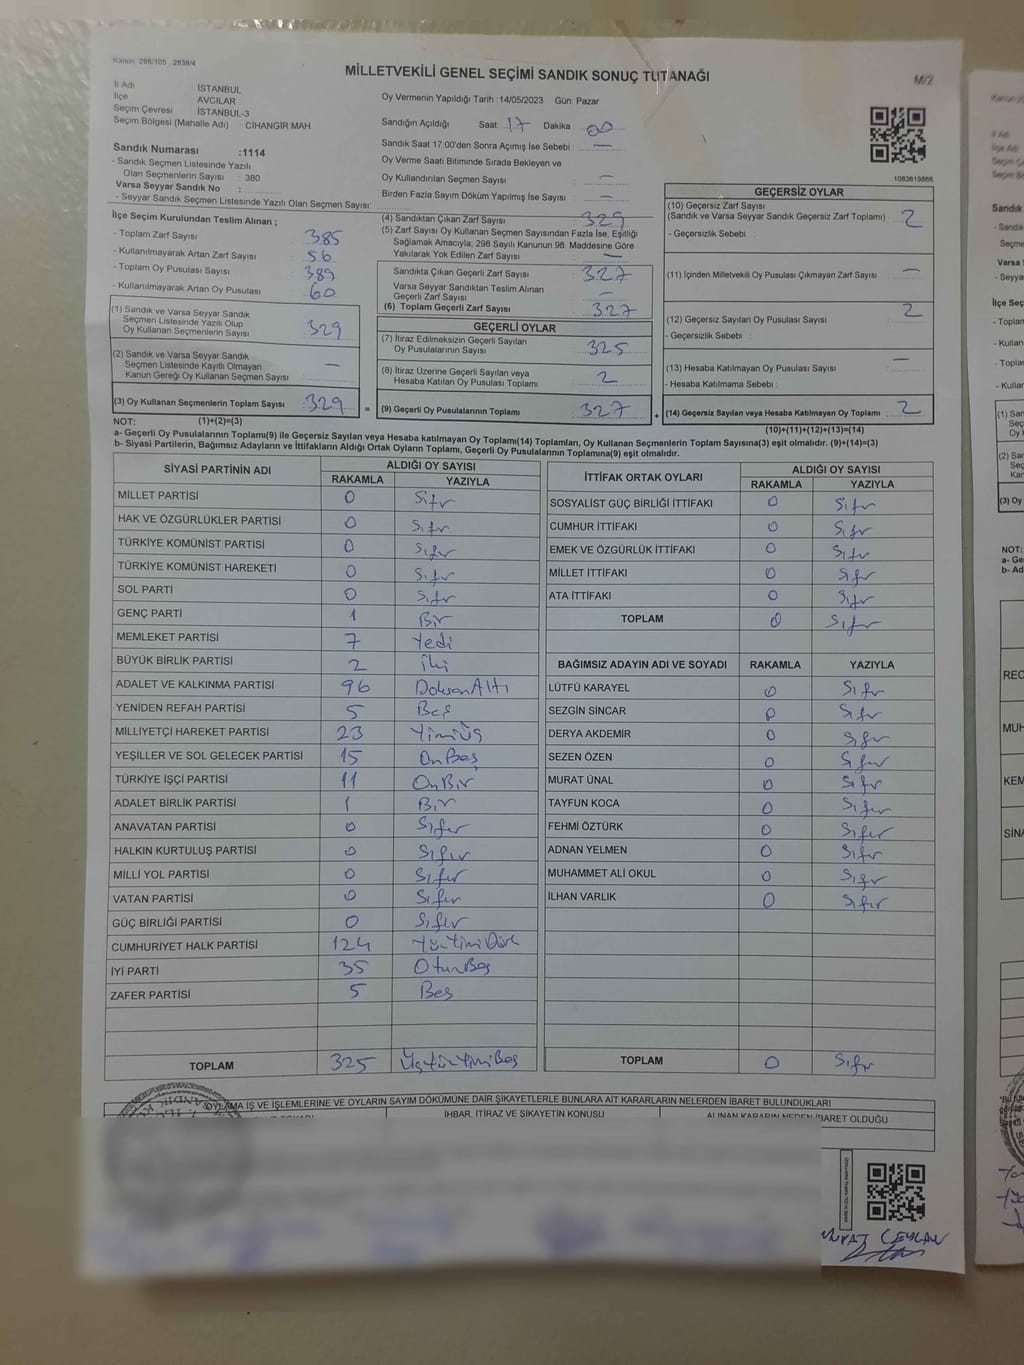 Kanun: 298/105 , 2839/4
MİLLETVEKİLİ GENEL SEÇİMİ SANDIK SONUÇ TUTANAĞI
M/2
İl Adı İSTANBUL
İlçe AVCILAR
Seçim Çevresi İSTANBUL-3
Seçim Bölgesi (Mahalle Adı) CİHANGİR MAH
Oy Vermenin Yapıldığı Tarih :14/05/2023 Gün: Pazar
Sandığın Açıldığı Saat: 17 Dakika : 00
Sandık Saat 17:00'den Sonra Açımış İse Sebebi : —
Oy Verme Saati Bitiminde Sırada Bekleyen ve
Oy Kullandırılan Seçmen Sayısı : —
Birden Fazla Sayım Döküm Yapılmış İse Sayısı : —
1083619866
Sandık Numarası :1114
- Sandık Seçmen Listesinde Yazılı
Olan Seçmenlerin Sayısı : 380
Varsa Seyyar Sandık No :
- Seyyar Sandık Seçmen Listesinde Yazılı Olan Seçmen Sayısı:
İlçe Seçim Kurulundan Teslim Alınan ;
- Toplam Zarf Sayısı : 385
- Kullanılmayarak Artan Zarf Sayısı : 56
- Toplam Oy Pusulası Sayısı : 389
- Kullanılmayarak Artan Oy Pusulası : 60
(1) Sandık ve Varsa Seyyar Sandık
Seçmen Listesinde Yazılı Olup
Oy Kullanan Seçmenlerin Sayısı : 329
(2) Sandık ve Varsa Seyyar Sandık
Seçmen Listesinde Kayıtlı Olmayan
Kanun Gereği Oy Kullanan Seçmen Sayısı : —
(3) Oy Kullanan Seçmenlerin Toplam Sayısı : 329
(4) Sandıktan Çıkan Zarf Sayısı : 329
(5) Zarf Sayısı Oy Kullanan Seçmen Sayısından Fazla İse, Eşitliği
Sağlamak Amacıyla, 298 Sayılı Kanunun 98. Maddesine Göre
Yakılarak Yok Edilen Zarf Sayısı : —
Sandıkta Çıkan Geçerli Zarf Sayısı : 327
Varsa Seyyar Sandıktan Teslim Alınan
Geçerli Zarf Sayısı : —
(6) Toplam Geçerli Zarf Sayısı : 327
GEÇERLİ OYLAR
(7) İtiraz Edilmeksizin Geçerli Sayılan
Oy Pusulalarının Sayısı : 325
(8) İtiraz Üzerine Geçerli Sayılan veya
Hesaba Katılan Oy Pusulası Toplamı : 2
= (9) Geçerli Oy Pusulalarının Toplamı : 327 +
GEÇERSİZ OYLAR
(10) Geçersiz Zarf Sayısı
(Sandık ve Varsa Seyyar Sandık Geçersiz Zarf Toplamı) : 2
- Geçersizlik Sebebi :
(11) İçinden Milletvekili Oy Pusulası Çıkmayan Zarf Sayısı : —
(12) Geçersiz Sayılan Oy Pusulası Sayısı : 2
- Geçersizlik Sebebi :
(13) Hesaba Katılmayan Oy Pusulası Sayısı : —
- Hesaba Katılmama Sebebi :
(14) Geçersiz Sayılan veya Hesaba Katılmayan Oy Toplamı : 2
NOT: (1)+(2)=(3) (10)+(11)+(12)+(13)=(14)
a- Geçerli Oy Pusulalarının Toplamı(9) ile Geçersiz Sayılan veya Hesaba katılmayan Oy Toplamı(14) Toplamları, Oy Kullanan Seçmenlerin Toplam Sayısına(3) eşit olmalıdır. (9)+(14)=(3)
b- Siyasi Partilerin, Bağımsız Adayların ve İttifakların Aldığı Ortak Oyların Toplamı, Geçerli Oy Pusulalarının Toplamına(9) eşit olmalıdır.
SİYASİ PARTİNİN ADI ALDIĞI OY SAYISI
RAKAMLA YAZIYLA
MİLLET PARTİSİ 0 Sıfır
HAK VE ÖZGÜRLÜKLER PARTİSİ 0 Sıfır
TÜRKİYE KOMÜNİST PARTİSİ 0 Sıfır
TÜRKİYE KOMÜNİST HAREKETİ 0 Sıfır
SOL PARTİ 0 Sıfır
GENÇ PARTİ 1 Bir
MEMLEKET PARTİSİ 7 Yedi
BÜYÜK BİRLİK PARTİSİ 2 İki
ADALET VE KALKINMA PARTİSİ 96 DoksanAltı
YENİDEN REFAH PARTİSİ 5 Beş
MİLLİYETÇİ HAREKET PARTİSİ 23
YEŞİLLER VE SOL GELECEK PARTİSİ 15 OnBeş
TÜRKİYE İŞÇİ PARTİSİ 11 OnBir
ADALET BİRLİK PARTİSİ 1 Bir
ANAVATAN PARTİSİ 0 Sıfır
HALKIN KURTULUŞ PARTİSİ 0 Sıfır
MİLLİ YOL PARTİSİ 0 Sıfır
VATAN PARTİSİ 0 Sıfır
GÜÇ BİRLİĞİ PARTİSİ 0 Sıfır
CUMHURİYET HALK PARTİSİ 124
İYİ PARTİ 35 OtuzBeş
ZAFER PARTİSİ 5 Beş
TOPLAM 325
İTTİFAK ORTAK OYLARI ALDIĞI OY SAYISI
RAKAMLA YAZIYLA
SOSYALİST GÜÇ BİRLİĞİ İTTİFAKI 0 Sıfır
CUMHUR İTTİFAKI 0 Sıfır
EMEK VE ÖZGÜRLÜK İTTİFAKI 0 Sıfır
MİLLET İTTİFAKI 0 Sıfır
ATA İTTİFAKI 0 Sıfır
TOPLAM 0 Sıfır
BAĞIMSIZ ADAYIN ADI VE SOYADI RAKAMLA YAZIYLA
LÜTFÜ KARAYEL 0 Sıfır
SEZGİN SİNCAR 0 Sıfır
DERYA AKDEMİR 0 Sıfır
SEZEN ÖZEN 0 Sıfır
MURAT ÜNAL 0 Sıfır
TAYFUN KOCA 0 Sıfır
FEHMİ ÖZTÜRK 0 Sıfır
ADNAN YELMEN 0 Sıfır
MUHAMMET ALİ OKUL 0 Sıfır
İLHAN VARLIK 0 Sıfır
TOPLAM 0 Sıfır
OYLAMA İŞ VE İŞLEMLERİNE VE OYLARIN SAYIM DÖKÜMÜNE DAİR ŞİKAYETLERLE BUNLARA AİT KARARLARIN NELERDEN İBARET BULUNDUKLARI
İHBAR, İTİRAZ VE ŞİKAYETİN KONUSU ALINAN KARARIN NEDEN İBARET OLDUĞU
CEYLAN